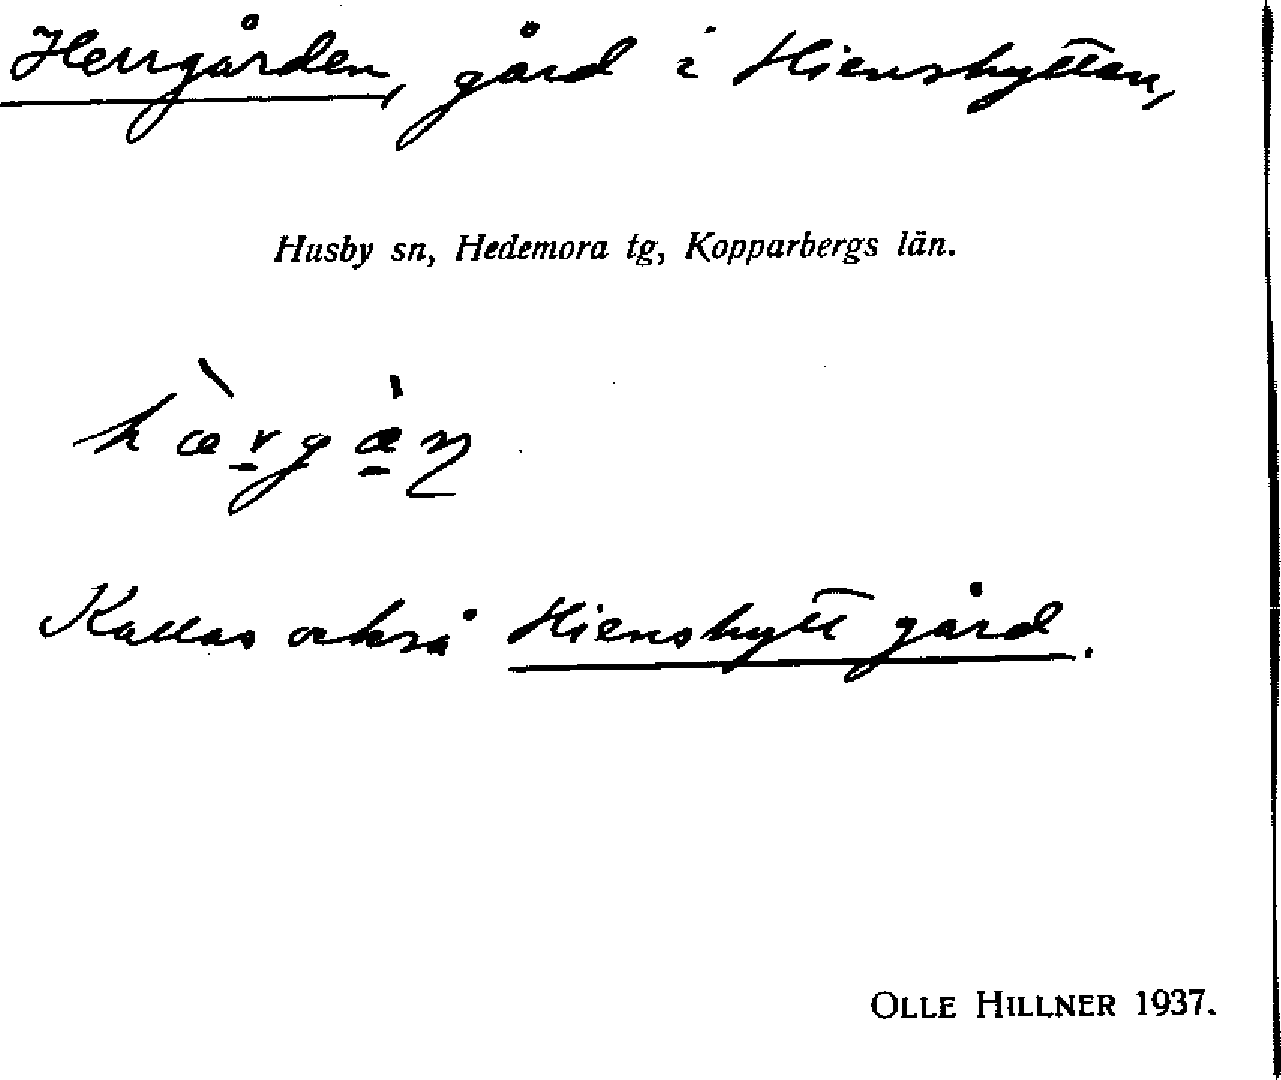 Herrgården, gård i Hienshyttan,
Husby sn, Hedemora tg, Kopparbergs län.
Kallas också Hienshytt gård.
OLLE HILLNER 1937.